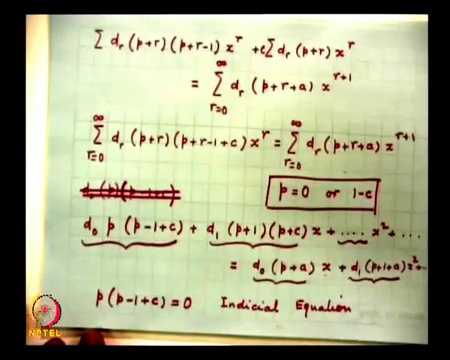 Σ d_r (p+r)(p+r-1) x^r + c Σ d_r (p+r) x^r
= Σ_{r=0}^{∞} d_r (p+r+a) x^{r+1}
Σ_{r=0}^{∞} d_r (p+r)(p+r-1+c) x^r = Σ_{r=0}^{∞} d_r (p+r+a) x^{r+1}
p=0 or 1-c
d_0 p (p-1+c) + d_1 (p+1)(p+c) x + .... x^2 + ...
= d_0 (p+a) x + d_1 (p+1+a) x^2 + ..
p(p-1+c) = 0 Indicial Equation
NPTEL